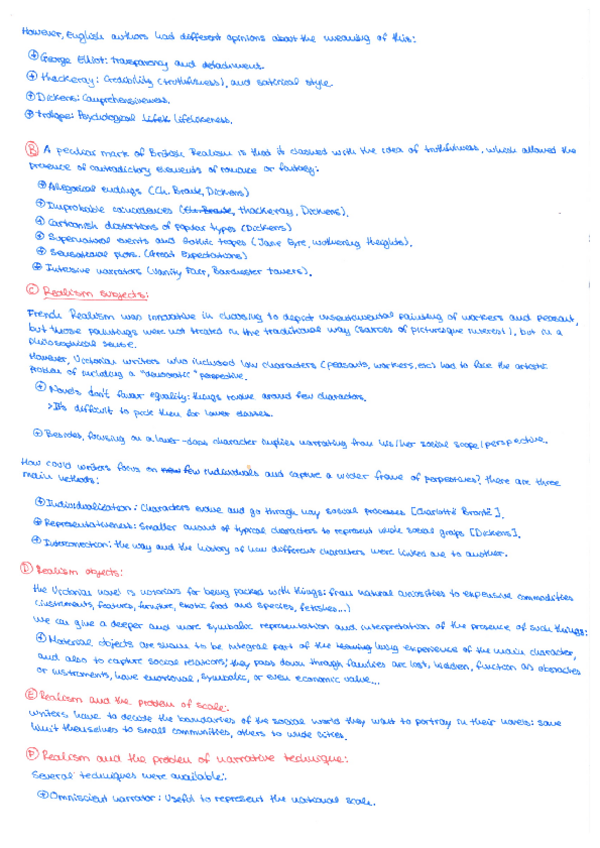 However, English authors had different opinions about the meaning of this:
George Elliot: transparency and detachment.
Thackeray: Credibility (truthfulness), and satirical style.
Dickens: Comprehensiveness.
Trollope: Psychological lifelikeness.
B) A peculiar mark of British Realism is that it clashed with the idea of truthfulness, which allowed the
presence of contradictory elements of romance or fantasy:
Allegorical endings (Ch. Bronte, Dickens)
Improbable coincidences (Ch. Bronte, thackeray, Dickens).
Cartoonish distortions of popular types (Dickens)
Supernatural events and Gothic tropes (Jane Eyre, wuthering heights).
Sensational plots. (Great Expectations)
Intrusive narrators (Vanity Fair, Barchester towers).
C) Realism subjects:
French Realism was innovative in choosing to depict unsentimental painting of workers and peasant,
but those paintings were not treated in the traditional way (sources of picturesque interest), but in a
philosophical sense.
However, Victorian writers who included low characters (peasants, workers, etc) had to face the artistic
problem of including a "democratic" perspective.
Novels don't favour equality: things revolve around few characters.
> It's difficult to pick them for lower classes.
Besides, focusing on a lower-class character implies narrating from his/her social scope/perspective.
How could writers focus on few individuals and capture a wider frame of perspectives? there are three
main methods:
Individualization: Characters evolve and go through many social processes [Charlotte Brontë].
Representativeness: Smaller amount of typical characters to represent whole social groups [Dickens].
Interconnection: the way and the history of how different characters were linked one to another.
D) Realism objects:
the Victorian novel is notorious for being packed with things: from natural curiosities to expensive commodities
(instruments, features, furniture, exotic food and species, fetishes...)
We can give a deeper and more symbolic representation and interpretation of the presence of such things:
Material objects are shown to be integral part of the living experience of the main character,
and also to capture social relations; they pass down through families are lost, hidden, function as obstacles
or instruments, have emotional, symbolic, or even economic value...
E) Realism and the problem of scale:
writers have to decide the boundaries of the social world they want to portray in their novels: some
limit themselves to small communities, others to wide cities.
F) Realism and the problem of narrative technique:
Several techniques were available:
Omniscient narrator: Useful to represent the national scale.